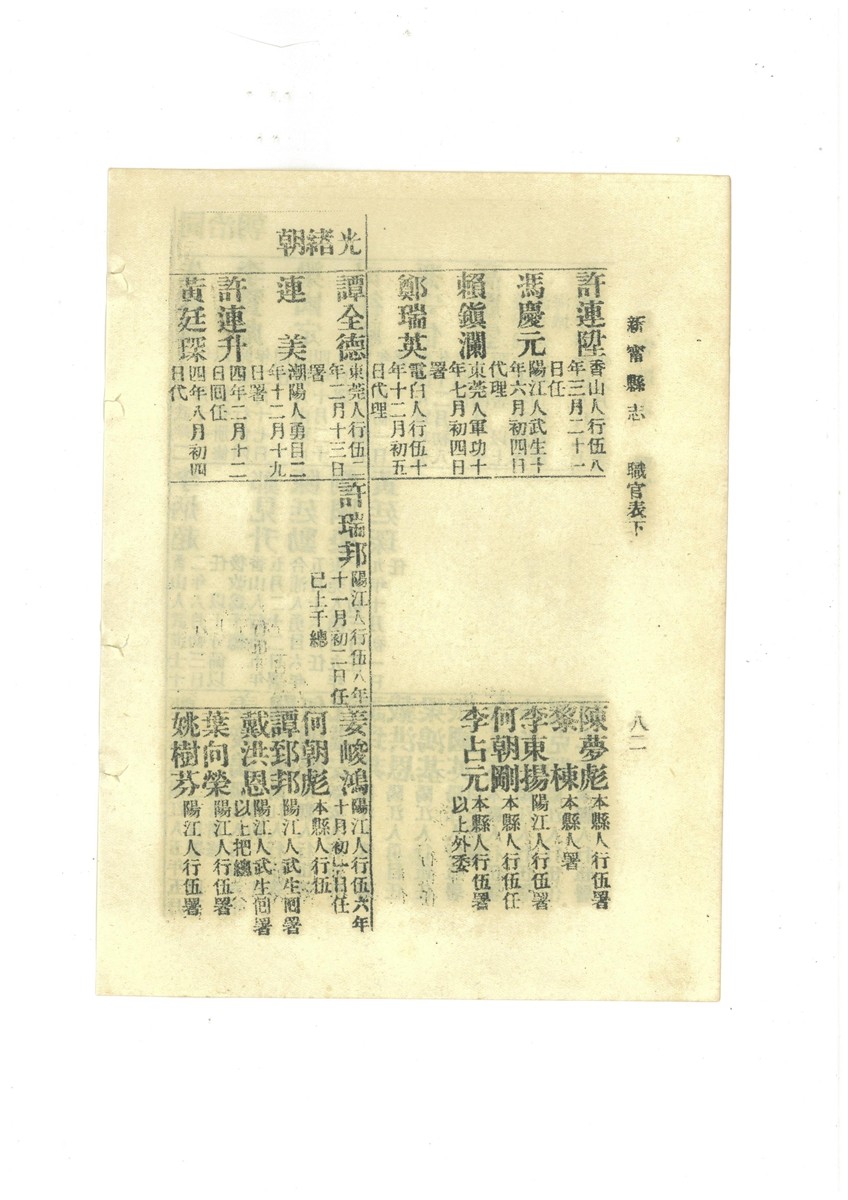 新甯縣志　職官表下　八二
許連陞
香山人行伍八
年三月二十一
日任
馮慶元
陽江人武生十
年六月初四日
代理
賴鎭瀾
東莞人軍功十
年七月初四日
署
鄭瑞英
電白人行伍十
年十二月初五
日代理
陳夢彪
本縣人行伍署
黎　棟
本縣人署
李東揚
陽江人行伍署
何朝剛
本縣人行伍任
李占元
本縣人行伍署
以上外委
光緒朝
譚全德
東莞人行伍二
年二月十三日
署
連　美
潮陽人勇目二
年十二月十九
日署
許連升
四年二月十二
日回任
黃廷琛
四年八月初四
日代
許瑞邦
陽江人行伍八年
十一月初二日任
已上千總
姜峻鴻
陽江人行伍六年
十月初 日任
何朝彪
本縣人行伍
譚郅邦
陽江人武生 署
戴洪恩
陽江人武生 署
以上把總
葉向榮
陽江人行伍署
姚樹芬
陽江人行伍署